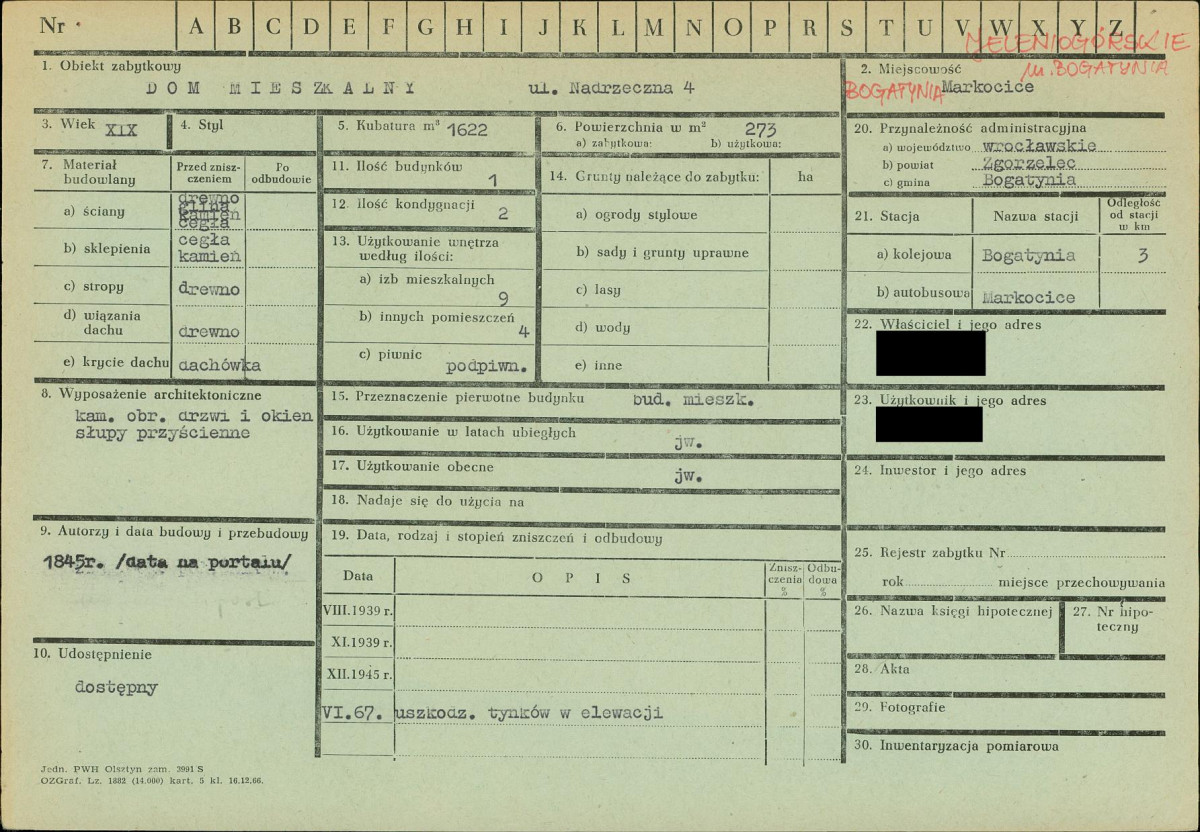 Nr A B C D E F G H I J K L M N O P R S T U V W X Y Z
JELENIOGÓRSKIE
m. BOGATYNIA
1. Obiekt zabytkowy
DOM MIESZKALNY ul. Nadrzeczna 4
2. Miejscowość
BOGATYNIA Markocice
3. Wiek XIX
4. Styl
5. Kubatura m³ 1622
6. Powierzchnia w m² 273
a) zabytkowa: b) użytkowa:
7. Materiał budowlany
Przed znisz-
czeniem
Po
odbudowie
a) ściany
drewno
glina
kamień
cegła
b) sklepienia
cegła
kamień
c) stropy drewno
d) wiązania
dachu drewno
e) krycie dachu dachówka
8. Wyposażenie architektoniczne
kam. obr. drzwi i okien
słupy przyścienne
9. Autorzy i data budowy i przebudowy
1845r. /data na portalu/
10. Udostępnienie
dostępny
11. Ilość budynków
1
12. Ilość kondygnacji
2
13. Użytkowanie wnętrza
według ilości:
a) izb mieszkalnych
9
b) innych pomieszczeń
4
c) piwnic
podpiwn.
14. Grunty należące do zabytku: ha
a) ogrody stylowe
b) sady i grunty uprawne
c) lasy
d) wody
e) inne
15. Przeznaczenie pierwotne budynku bud. mieszk.
16. Użytkowanie w latach ubiegłych jw.
17. Użytkowanie obecne jw.
18. Nadaje się do użycia na
19. Data, rodzaj i stopień zniszczeń i odbudowy
Data OPIS
Znisz-
czenia
%
Odbu-
dowa
%
VIII.1939 r.
XI.1939 r.
XII.1945 r.
VI.67. uszkodz. tynków w elewacji
20. Przynależność administracyjna
a) województwo wrocławskie
b) powiat Zgorzelec
c) gmina Bogatynia
21. Stacja Nazwa stacji
Odległość
od stacji
w km
a) kolejowa Bogatynia 3
b) autobusowa Markocice
22. Właściciel i jego adres
23. Użytkownik i jego adres
24. Inwestor i jego adres
25. Rejestr zabytku Nr
rok miejsce przechowywania
26. Nazwa księgi hipotecznej
27. Nr hipo-
teczny
28. Akta
29. Fotografie
30. Inwentaryzacja pomiarowa
Jedn. PWH Olsztyn zam. 3991 S
OZGraf. Lz. 1882 (14.000) kart. 5 kl. 16.12.66.